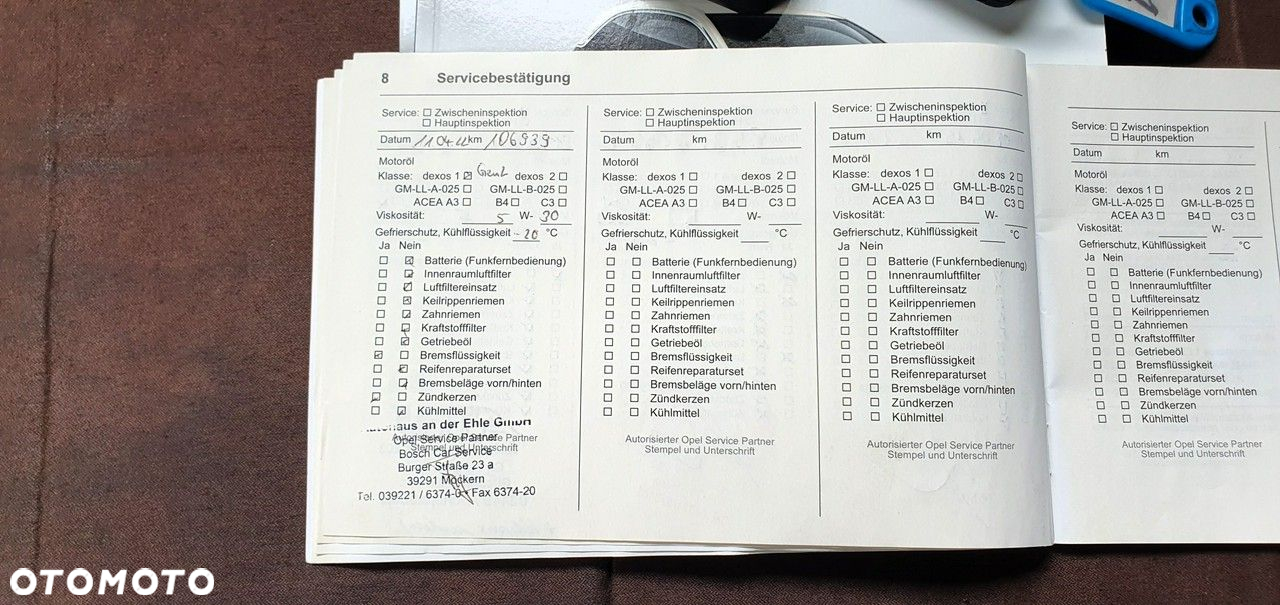 8 Servicebestätigung
Service: ☐ Zwischeninspektion
☐ Hauptinspektion
Datum 11.04.22 km 106939
Motoröl
Klasse: dexos 1 ☑ dexos 2 ☐
GM-LL-A-025 ☐ GM-LL-B-025 ☐
ACEA A3 ☐ B4 ☐ C3 ☐
Viskosität: 5 W- 30
Gefrierschutz, Kühlflüssigkeit -20 °C
Ja Nein
☐ ☑ Batterie (Funkfernbedienung)
☐ ☑ Innenraumluftfilter
☐ ☑ Luftfiltereinsatz
☐ ☑ Keilrippenriemen
☐ ☑ Zahnriemen
☐ ☑ Kraftstofffilter
☐ ☑ Getriebeöl
☑ ☐ Bremsflüssigkeit
☐ ☑ Reifenreparaturset
☐ ☑ Bremsbeläge vorn/hinten
☑ ☐ Zündkerzen
☐ ☑ Kühlmittel
Autorisierter Opel Service Partner
Stempel und Unterschrift
an der Ehle GmbH
Opel Service Partner
Bosch Car Service
Burger Straße 23 a
39291 Möckern
Tel. 039221 / 6374-0 Fax 6374-20
Service: ☐ Zwischeninspektion
☐ Hauptinspektion
Datum km
Motoröl
Klasse: dexos 1 ☐ dexos 2 ☐
GM-LL-A-025 ☐ GM-LL-B-025 ☐
ACEA A3 ☐ B4 ☐ C3 ☐
Viskosität: W-
Gefrierschutz, Kühlflüssigkeit °C
Ja Nein
☐ ☐ Batterie (Funkfernbedienung)
☐ ☐ Innenraumluftfilter
☐ ☐ Luftfiltereinsatz
☐ ☐ Keilrippenriemen
☐ ☐ Zahnriemen
☐ ☐ Kraftstofffilter
☐ ☐ Getriebeöl
☐ ☐ Bremsflüssigkeit
☐ ☐ Reifenreparaturset
☐ ☐ Bremsbeläge vorn/hinten
☐ ☐ Zündkerzen
☐ ☐ Kühlmittel
Autorisierter Opel Service Partner
Stempel und Unterschrift
Service: ☐ Zwischeninspektion
☐ Hauptinspektion
Datum km
Motoröl
Klasse: dexos 1 ☐ dexos 2 ☐
GM-LL-A-025 ☐ GM-LL-B-025 ☐
ACEA A3 ☐ B4 ☐ C3 ☐
Viskosität: W-
Gefrierschutz, Kühlflüssigkeit °C
Ja Nein
☐ ☐ Batterie (Funkfernbedienung)
☐ ☐ Innenraumluftfilter
☐ ☐ Luftfiltereinsatz
☐ ☐ Keilrippenriemen
☐ ☐ Zahnriemen
☐ ☐ Kraftstofffilter
☐ ☐ Getriebeöl
☐ ☐ Bremsflüssigkeit
☐ ☐ Reifenreparaturset
☐ ☐ Bremsbeläge vorn/hinten
☐ ☐ Zündkerzen
☐ ☐ Kühlmittel
Autorisierter Opel Service Partner
Stempel und Unterschrift
Service: ☐ Zwischeninspektion
☐ Hauptinspektion
Datum km
Motoröl
Klasse: dexos 1 ☐ dexos 2 ☐
GM-LL-A-025 ☐ GM-LL-B-025 ☐
ACEA A3 ☐ B4 ☐ C3 ☐
Viskosität: W-
Gefrierschutz, Kühlflüssigkeit °C
Ja Nein
☐ ☐ Batterie (Funkfernbedienung)
☐ ☐ Innenraumluftfilter
☐ ☐ Luftfiltereinsatz
☐ ☐ Keilrippenriemen
☐ ☐ Zahnriemen
☐ ☐ Kraftstofffilter
☐ ☐ Getriebeöl
☐ ☐ Bremsflüssigkeit
☐ ☐ Reifenreparaturset
☐ ☐ Bremsbeläge vorn/hinten
☐ ☐ Zündkerzen
☐ ☐ Kühlmittel
Autorisierter Opel Service Partner
Stempel und Unterschrift
OTOMOTO